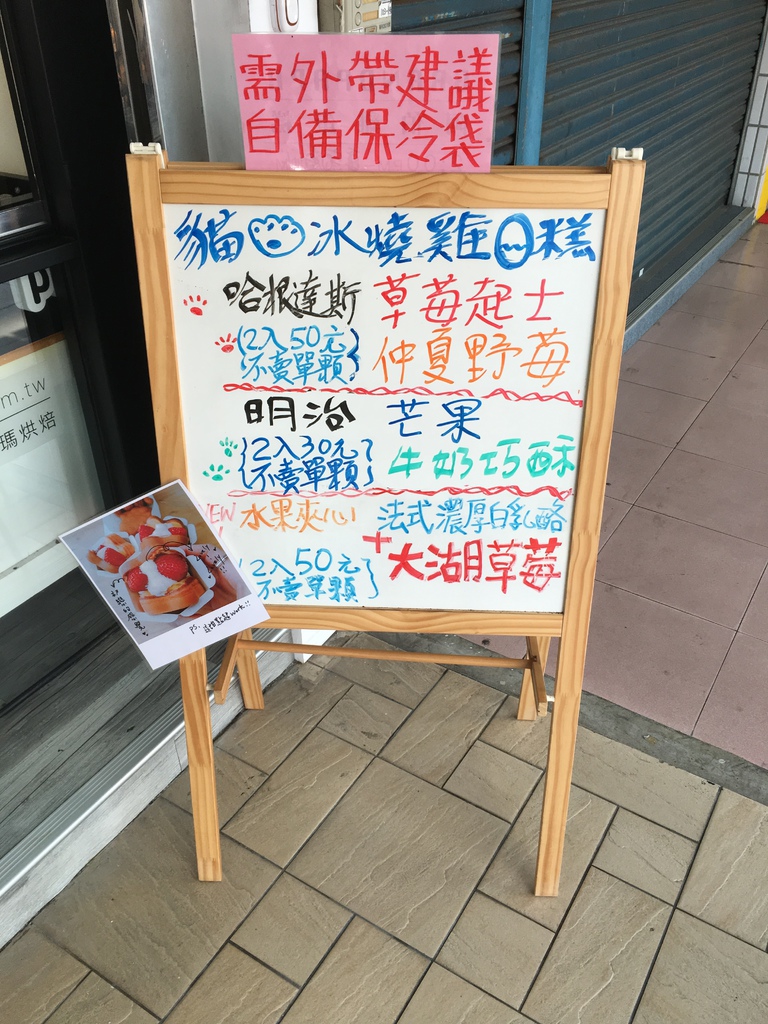 需外帶建議
自備保冷袋
貓 冰燒雞 糕
哈根達斯 草莓起士
2入50元 仲夏野莓
不賣單顆
明治 芒果
2入30元 牛奶巧酥
不賣單顆
NEW 水果夾心 法式濃厚白乳酪
+大湖草莓
2入50元
不賣單顆
PS.
work!!
P
m.tw
瑪烘焙